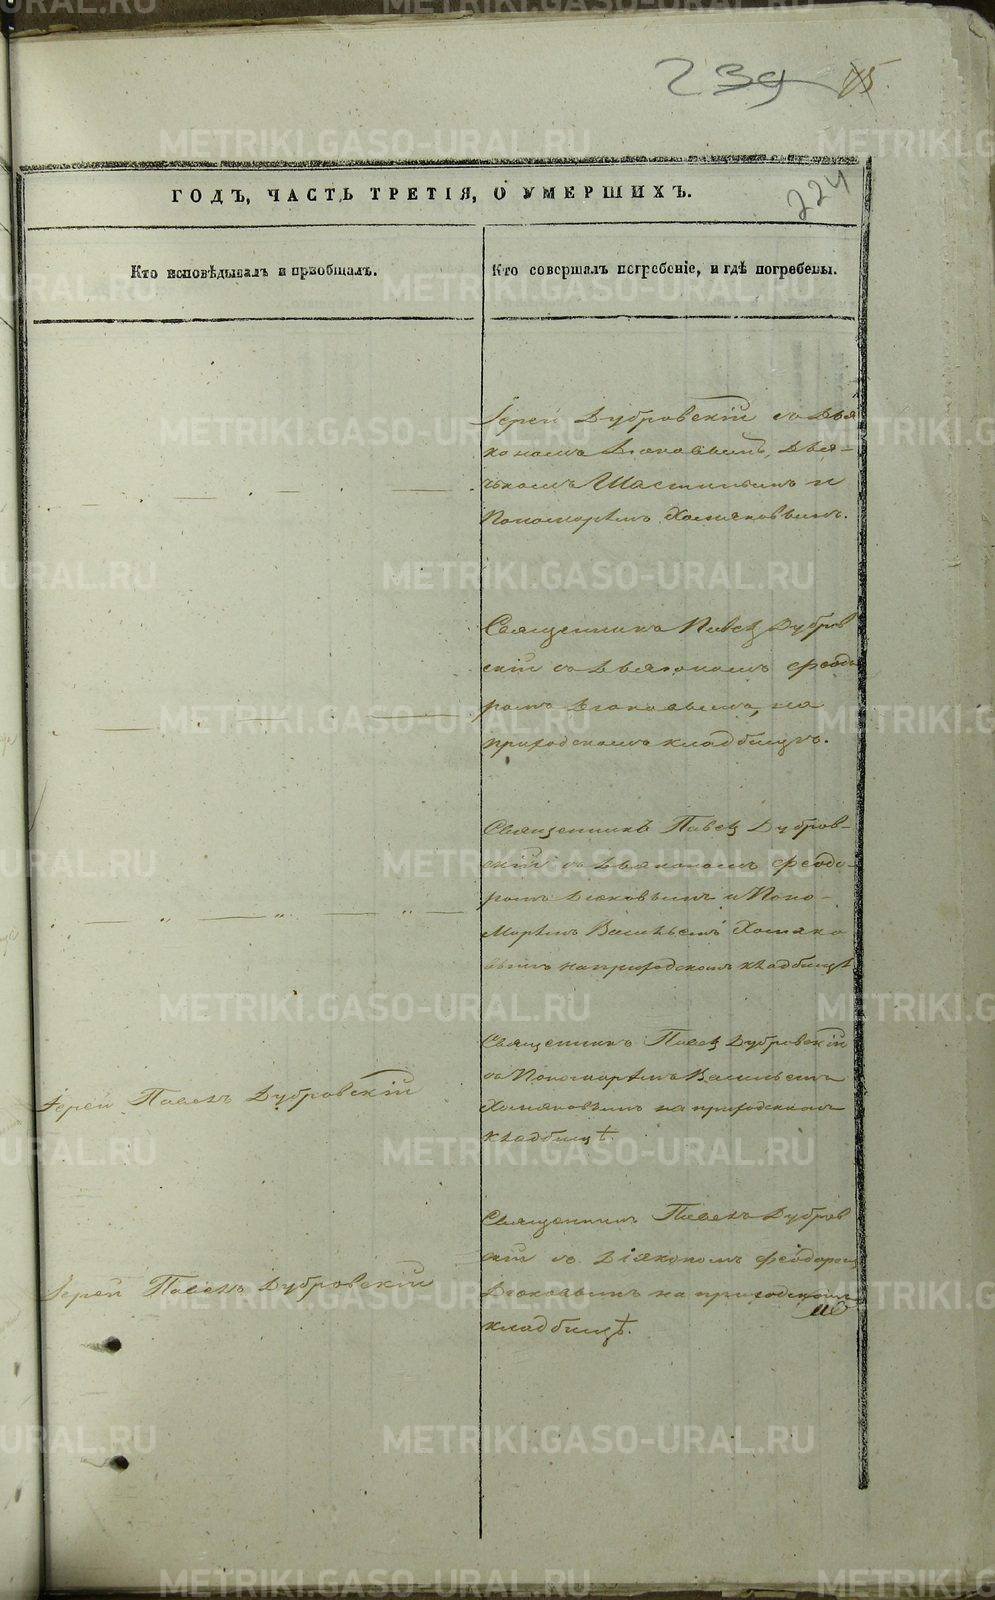 239 15.
224
ГОДЪ, ЧАСТЬ ТРЕТІЯ, О УМЕРШИХЪ.
Кто исповѣдывалъ и пріобщалъ.
Кто совершалъ погребеніе, и гдѣ погребены.
Іерей Дубровскій съ Дья
кономъ Дюковымъ, Дья-
чкомъ и
Пономаремъ Хомяковымъ.
Священникъ Павелъ Дубров
скій съ Дьякономъ Феодо
ромъ Дюковымъ, на
приходскомъ кладбищѣ.
Священникъ Павелъ Дубров-
скій съ Дьякономъ Феодо-
ромъ Дюковымъ и Поно-
маремъ Васильемъ Хомяко
вымъ на приходскомъ кладбищѣ
Іерей Павелъ Дубровскій
Священникъ Павелъ Дубровскій
съ Пономаремъ Васильемъ
Хомяковымъ на приходскомъ
кладбищѣ.
Іерей Павелъ Дубровскій
Священникъ Павелъ Дубров
скій съ Діякономъ Феодоромъ
Дюковымъ на приходскомъ
кладбищѣ.
METRIKI.GASO-URAL.RU